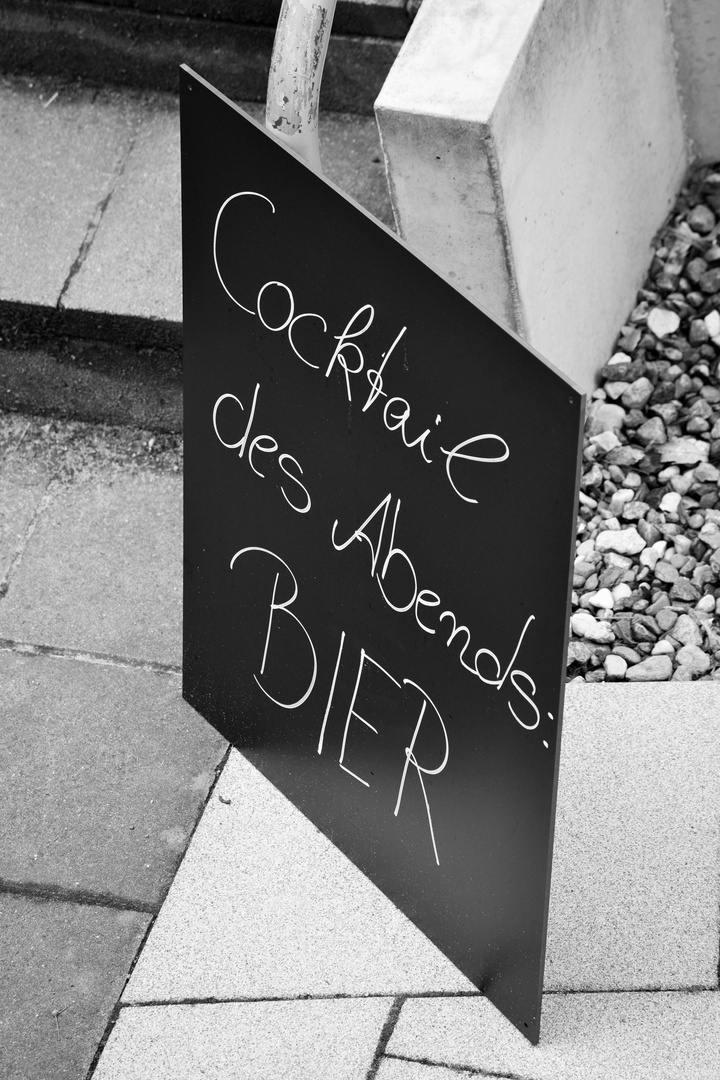 Cocktail
des Abends:
BIER